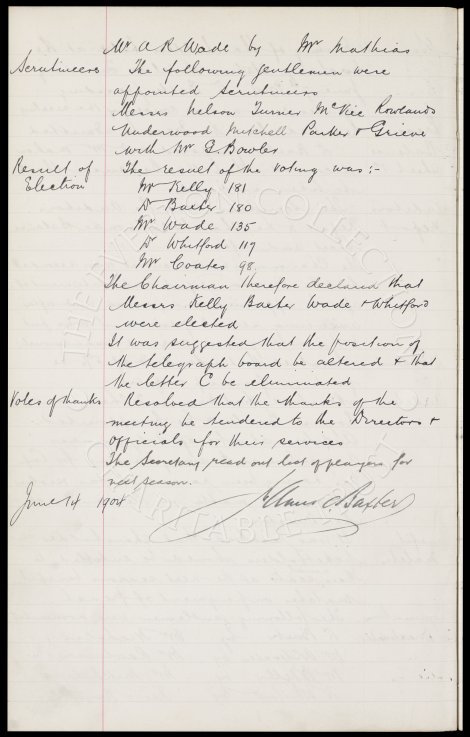 Mr A R Wade by Mr Mathias
Scrutineers The following gentlemen were
appointed Scrutineers
Messrs Nelson Turner McVie Rowlands
Underwood Mitchell Parker & Grieve
with Mr Bowler
Result of The result of the voting was:-
Election Mr Kelly 181
Dr Baxter 180
Mr Wade 135
Dr Whitford 117
Mr Coates 98
The Chairman therefore declared that
Messrs Kelly Baxter Wade & Whitford
were elected
It was suggested that the position of
the telegraph board be altered & that
the letter C be eliminated
Votes of thanks Resolved that the thanks of the
meeting be tendered to the Directors &
officials for their services
The Secretary read out list of players for
next season.
June 14 1908 Baxter
THE EVERTON COLLECTION CHARITABLE TRUST